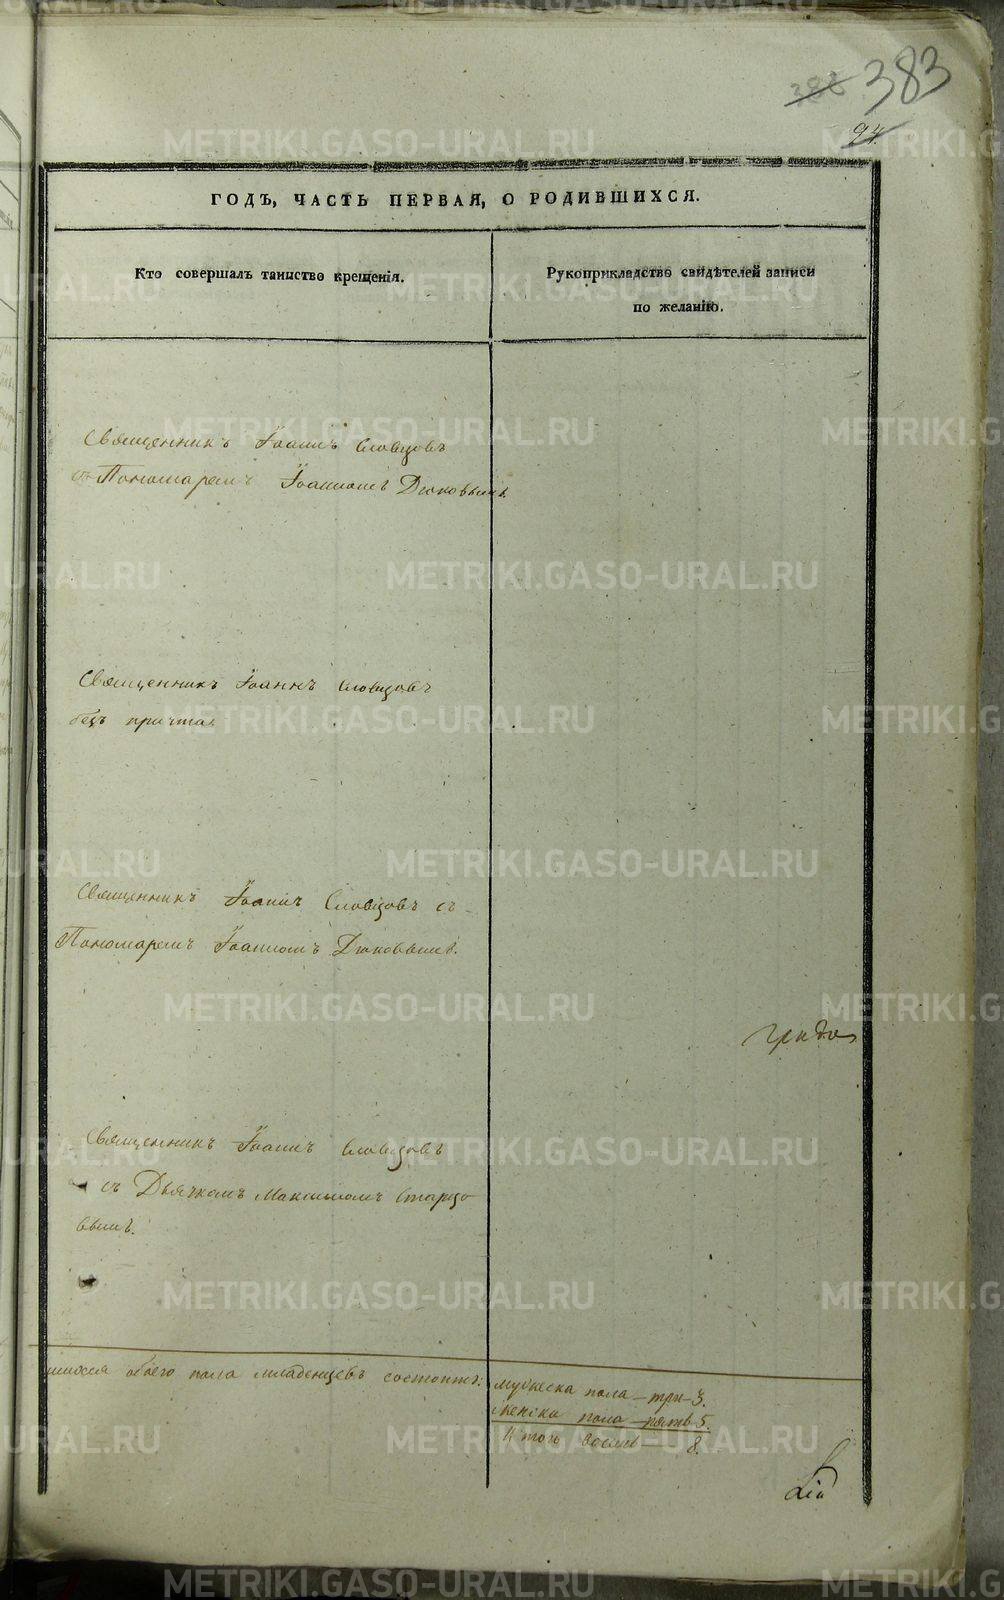 383
383
94
ГОДЪ, ЧАСТЬ ПЕРВАЯ, О РОДИВШИХСЯ.
Кто совершалъ таинство крещенія.
Рукоприкладство свидѣтелей записи
по желанію.
Священникъ Іоаннъ Словцовъ
съ Пономаремъ Іоанномъ Дюковымъ.
Священникъ Іоаннъ Словцовъ
безъ причта.
Священникъ Іоаннъ Словцовъ съ
Пономаремъ Іоанномъ Дюковымъ.
Священникъ Іоаннъ Словцовъ
съ Дьячкомъ Максимомъ Старцо
вымъ.
обоего пола младенцевъ состоитъ:
мужеска пола – три 3.
женска пола – пять 5.
Итого восемь 8.
METRIKI.GASO-URAL.RU